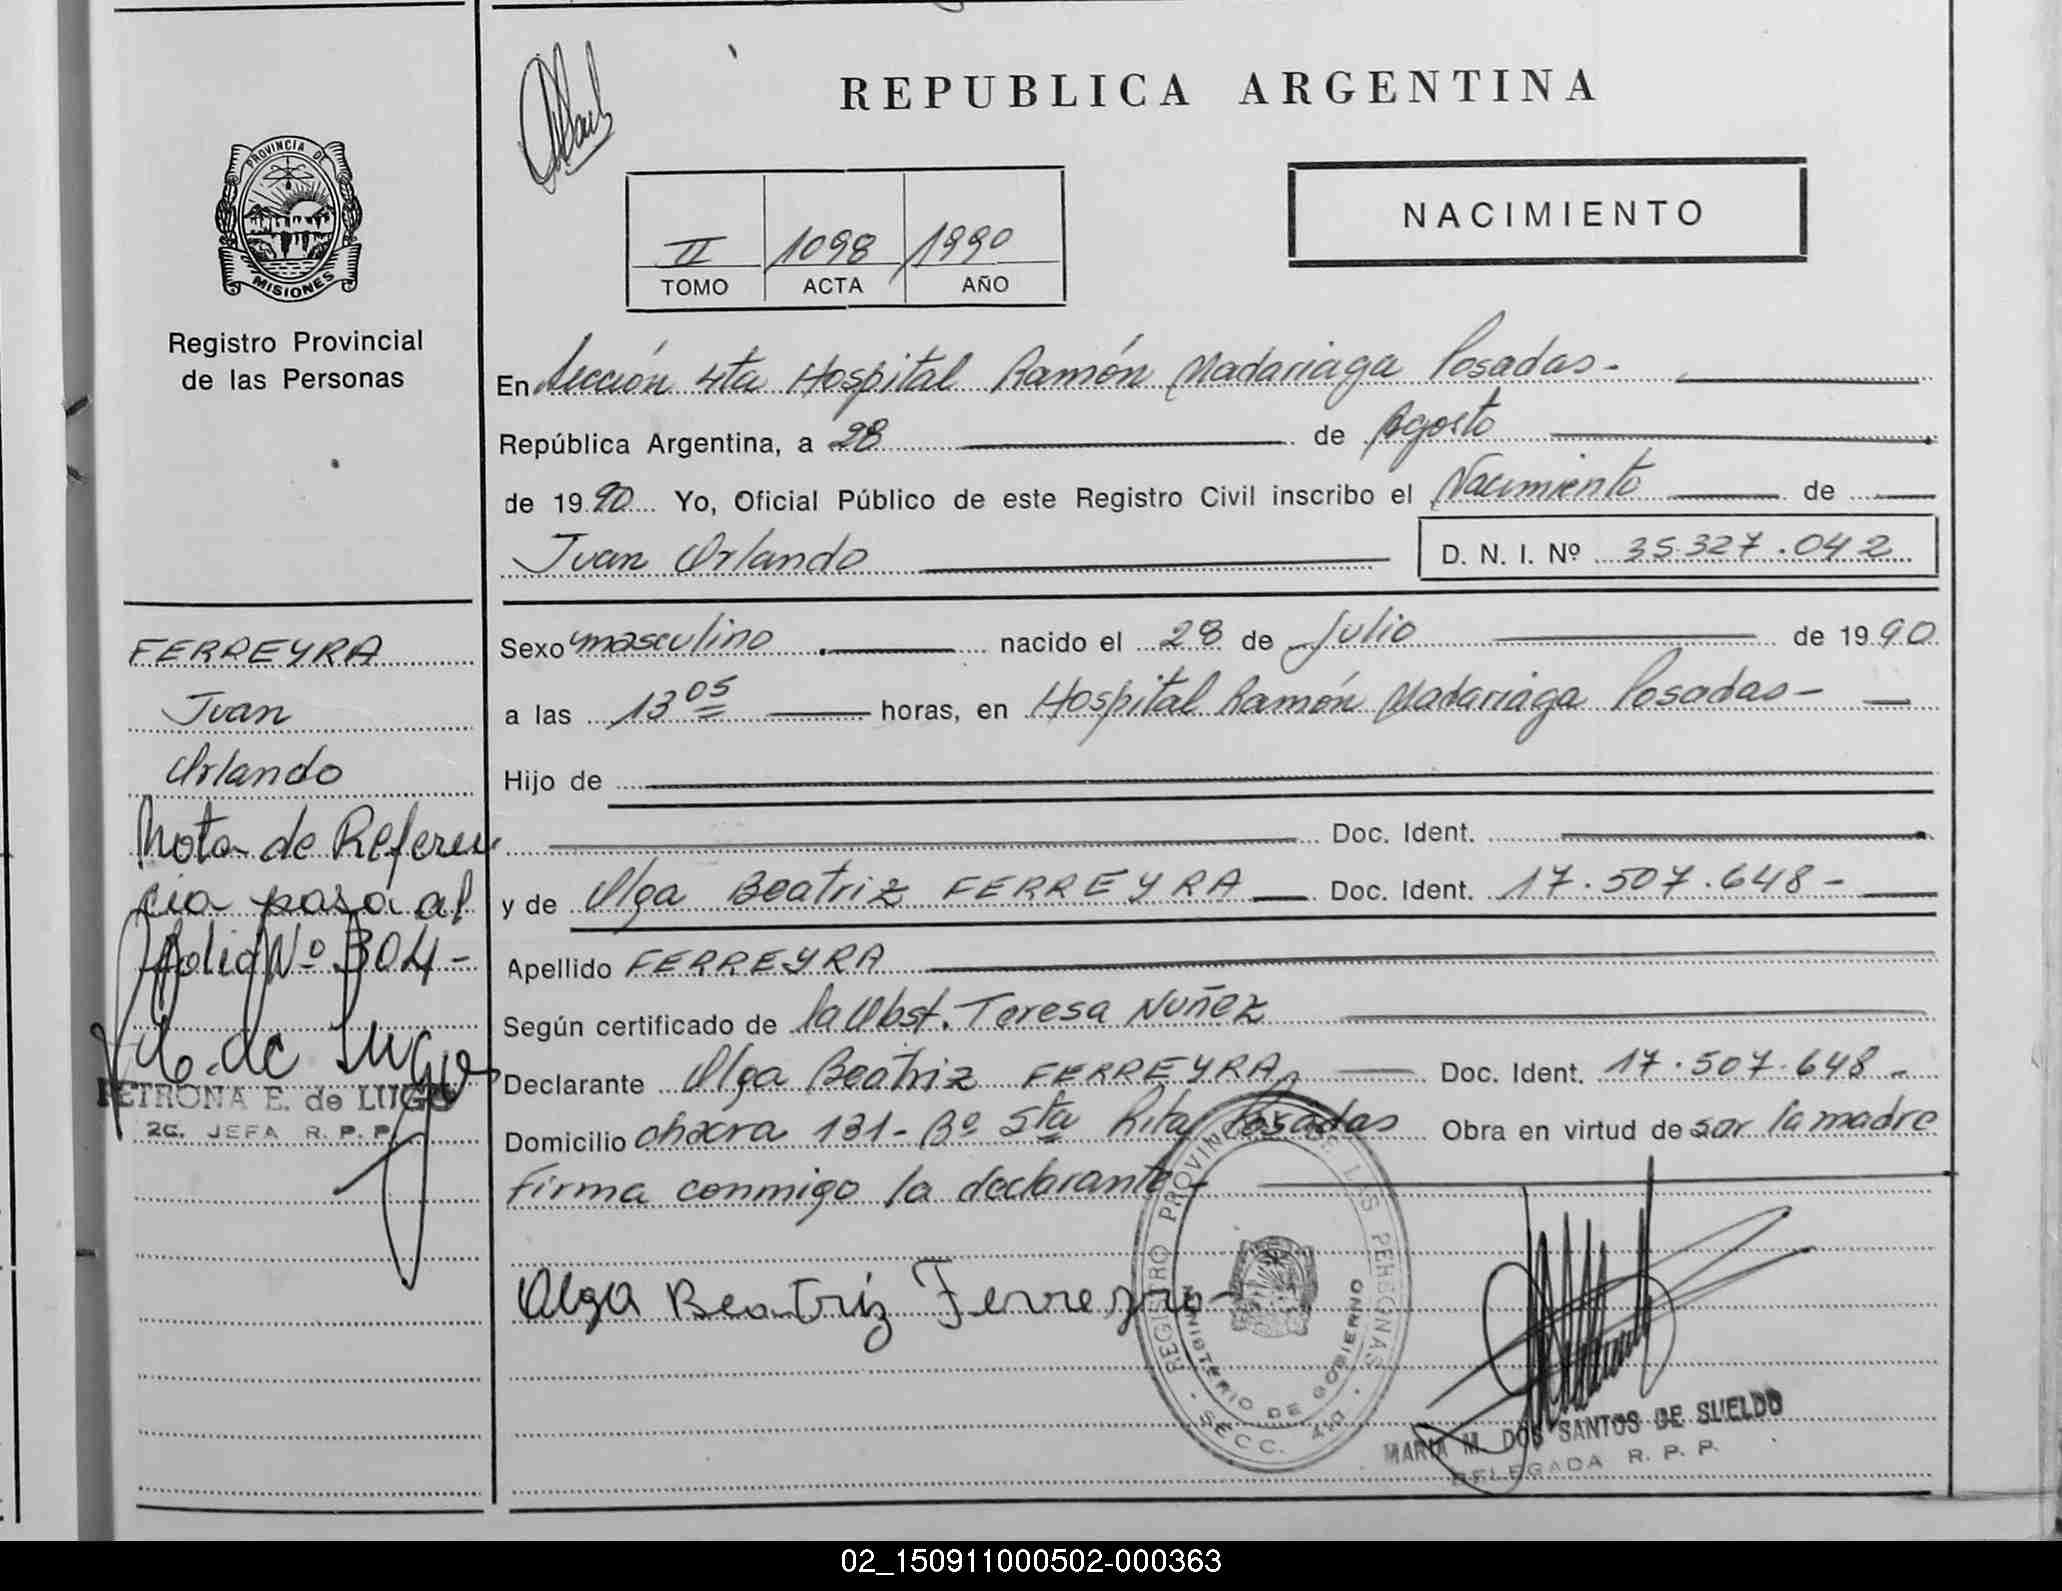 REPUBLICA ARGENTINA
NACIMIENTO
II 1098 1990
TOMO ACTA AÑO
PROVINCIA DE
MISIONES
Registro Provincial
de las Personas
En Sección 4ta Hospital Ramón Madariaga Posadas-
República Argentina, a 28 de Agosto
de 1990 Yo, Oficial Público de este Registro Civil inscribo el Nacimiento de
Juan Orlando D. N. I. Nº 35.327.042
FERREYRA
Juan
Orlando
Nota de Referen
cia pasa al
folio Nº 304-
PETRONA E. de LUGO
2C. JEFA R. P. P.
Sexo masculino nacido el 28 de Julio de 1990
a las 13 05 horas, en Hospital Ramón Madariaga Posadas-
Hijo de
Doc. Ident.
y de Olga Beatriz FERREYRA Doc. Ident. 17.507.648-
Apellido FERREYRA
Según certificado de la Obst. Teresa Nuñez
Declarante Olga Beatriz FERREYRA Doc. Ident. 17.507.648-
Domicilio chacra 131- Bº Sta Rita Posadas Obra en virtud de ser la madre
firma conmigo la declarante-
Olga Beatriz Ferreyra
REGISTRO PROVINCIAL DE LAS PERSONAS
MINISTERIO DE GOBIERNO
SECC. 4TA
MARIA M. DOS SANTOS DE SUELDO
DELEGADA R. P. P.
02_150911000502-000363